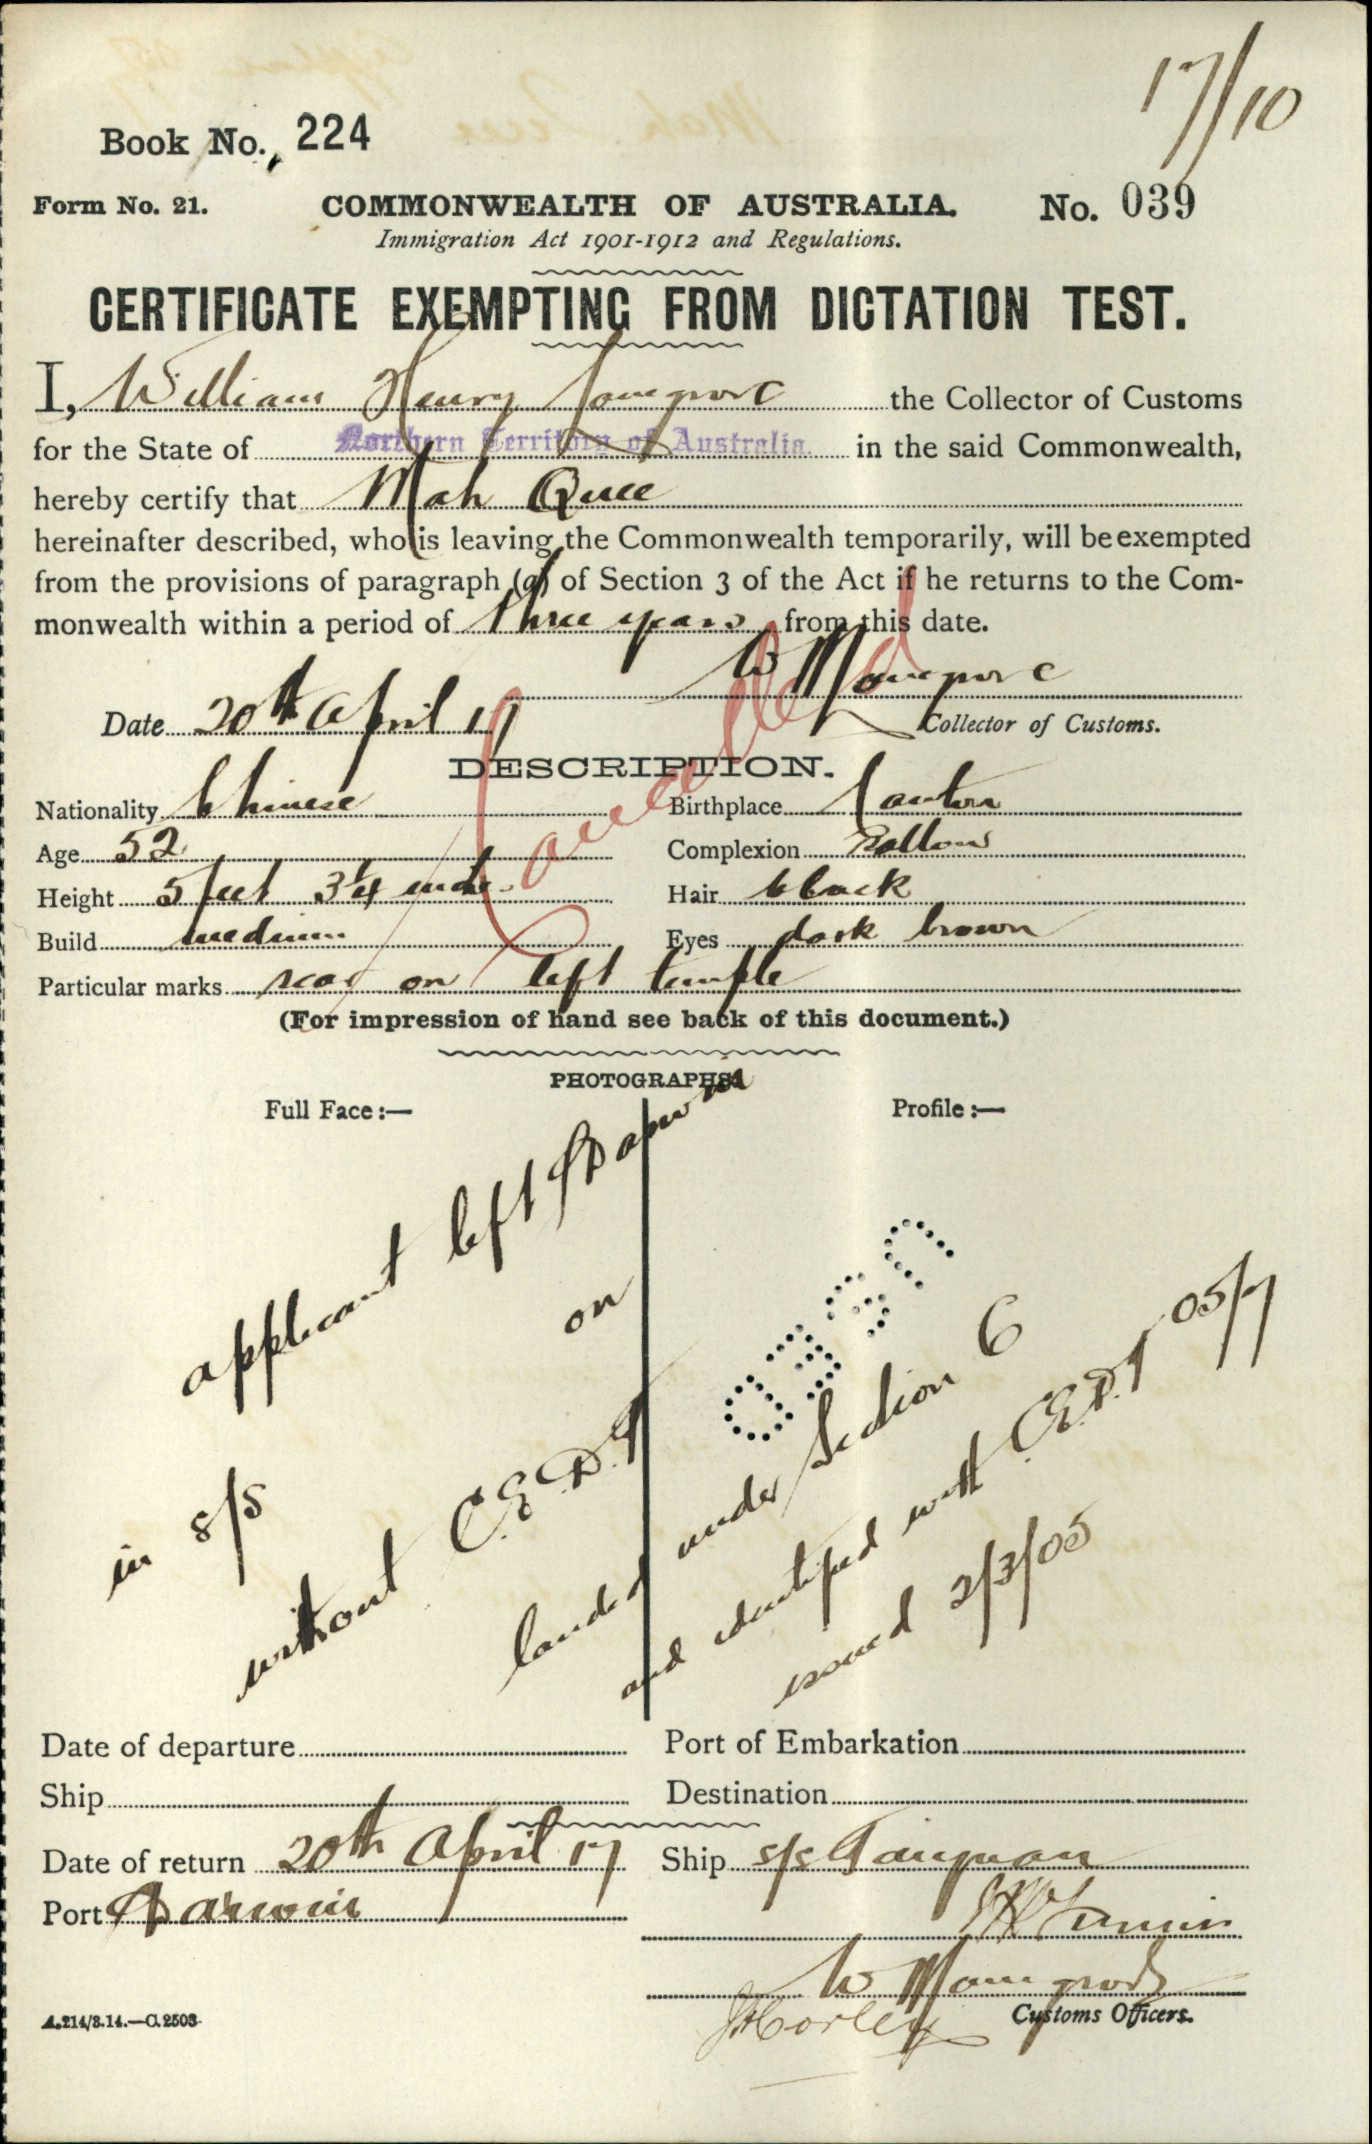 17/10
Book No. 224
Form No. 21. COMMONWEALTH OF AUSTRALIA. No. 039
Immigration Act 1901-1912 and Regulations.
CERTIFICATE EXEMPTING FROM DICTATION TEST.
I, William Henry the Collector of Customs
for the State of Northern Territory of Australia in the said Commonwealth,
hereby certify that Mah Quee
hereinafter described, who is leaving the Commonwealth temporarily, will be exempted
from the provisions of paragraph (a) of Section 3 of the Act if he returns to the Com-
monwealth within a period of three years from this date.
Date 20th April 17 Collector of Customs.
Cancelled
DESCRIPTION.
Nationality Chinese Birthplace Canton
Age 52 Complexion Sallow
Height 5 feet 3¼ inche Hair black
Build medium Eyes dark brown
Particular marks scar on left temple
(For impression of hand see back of this document.)
PHOTOGRAPHS.
Full Face:— Profile:—
applicant left Darwin
in s/s on
without C.E.D.T
USED
landed under Section 6
and identified with C.E.D.T 05/7
issued 2/3/05
Date of departure Port of Embarkation
Ship Destination
Date of return 20th April 17 Ship s/s Taiyuan
Port Darwin
Customs Officers.
A.214/3.14.—C.2503